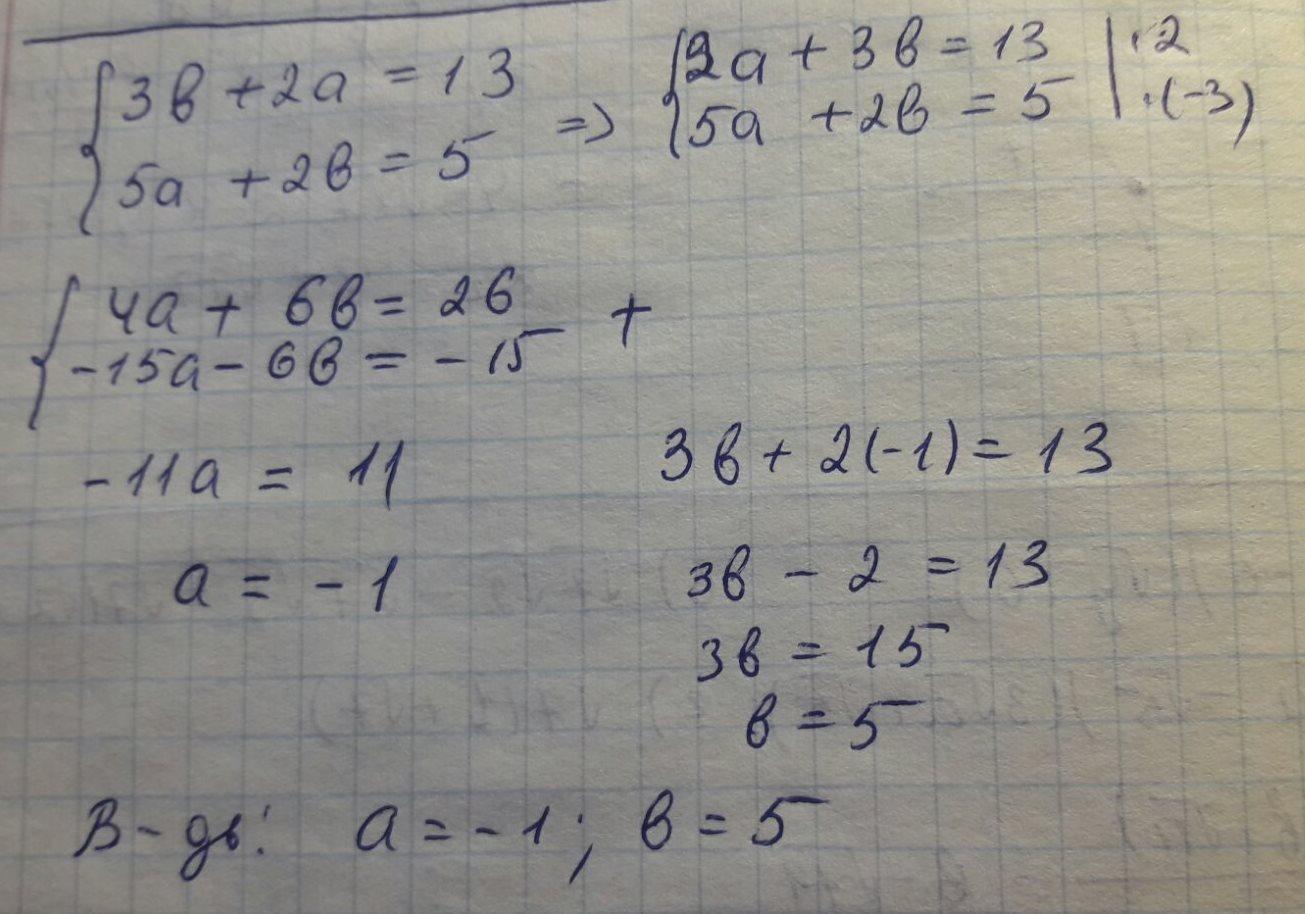 3в + 2а = 13
5а + 2в = 5
=>
2а + 3в = 13 | · 2
5а + 2в = 5 | · (-3)
4а + 6в = 26
-15а - 6в = -15
+
-11а = 11
а = -1
3в + 2(-1) = 13
3в - 2 = 13
3в = 15
в = 5
В-дь: а = -1; в = 5